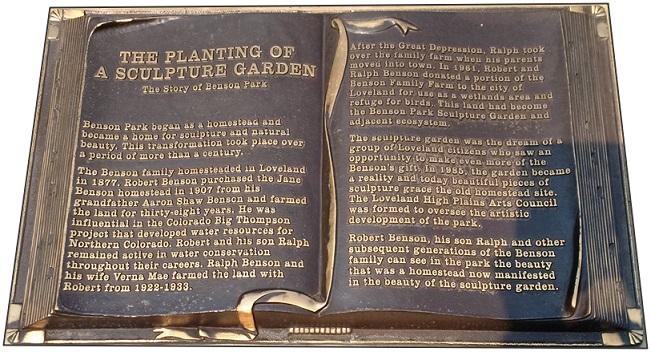 THE PLANTING OF
A SCULPTURE GARDEN
The Story of Benson Park
Benson Park began as a homestead and
became a home for sculpture and natural
beauty. This transformation took place over
a period of more than a century.
The Benson family homesteaded in Loveland
in 1877. Robert Benson purchased the Jane
Benson homestead in 1907 from his
grandfather Aaron Shaw Benson and farmed
the land for thirty-eight years. He was
influential in the Colorado Big Thompson
Project that developed water resources for
Northern Colorado. Robert and his son Ralph
remained active in water conservation
throughout their careers. Ralph Benson and
his wife Verna Mae farmed the land with
Robert from 1922-1933.
After the Great Depression, Ralph took
over the family farm when his parents
moved into town. In 1961, Robert and
Ralph Benson donated a portion of the
Benson Family Farm to the city of
Loveland for use as a wetlands area and
refuge for birds. This land had become
the Benson Park Sculpture Garden and
adjacent ecosystem.
The sculpture garden was the dream of a
group of Loveland citizens who saw an
opportunity to make even more of the
Benson's gift. In 1985, the garden became
a reality and today beautiful pieces of
sculpture grace the old homestead site.
The Loveland High Plains Arts Council
was formed to oversee the artistic
development of the park.
Robert Benson, his son Ralph and other
subsequent generations of the Benson
family can see in the park the beauty
that was a homestead now manifested
in the beauty of the sculpture garden.